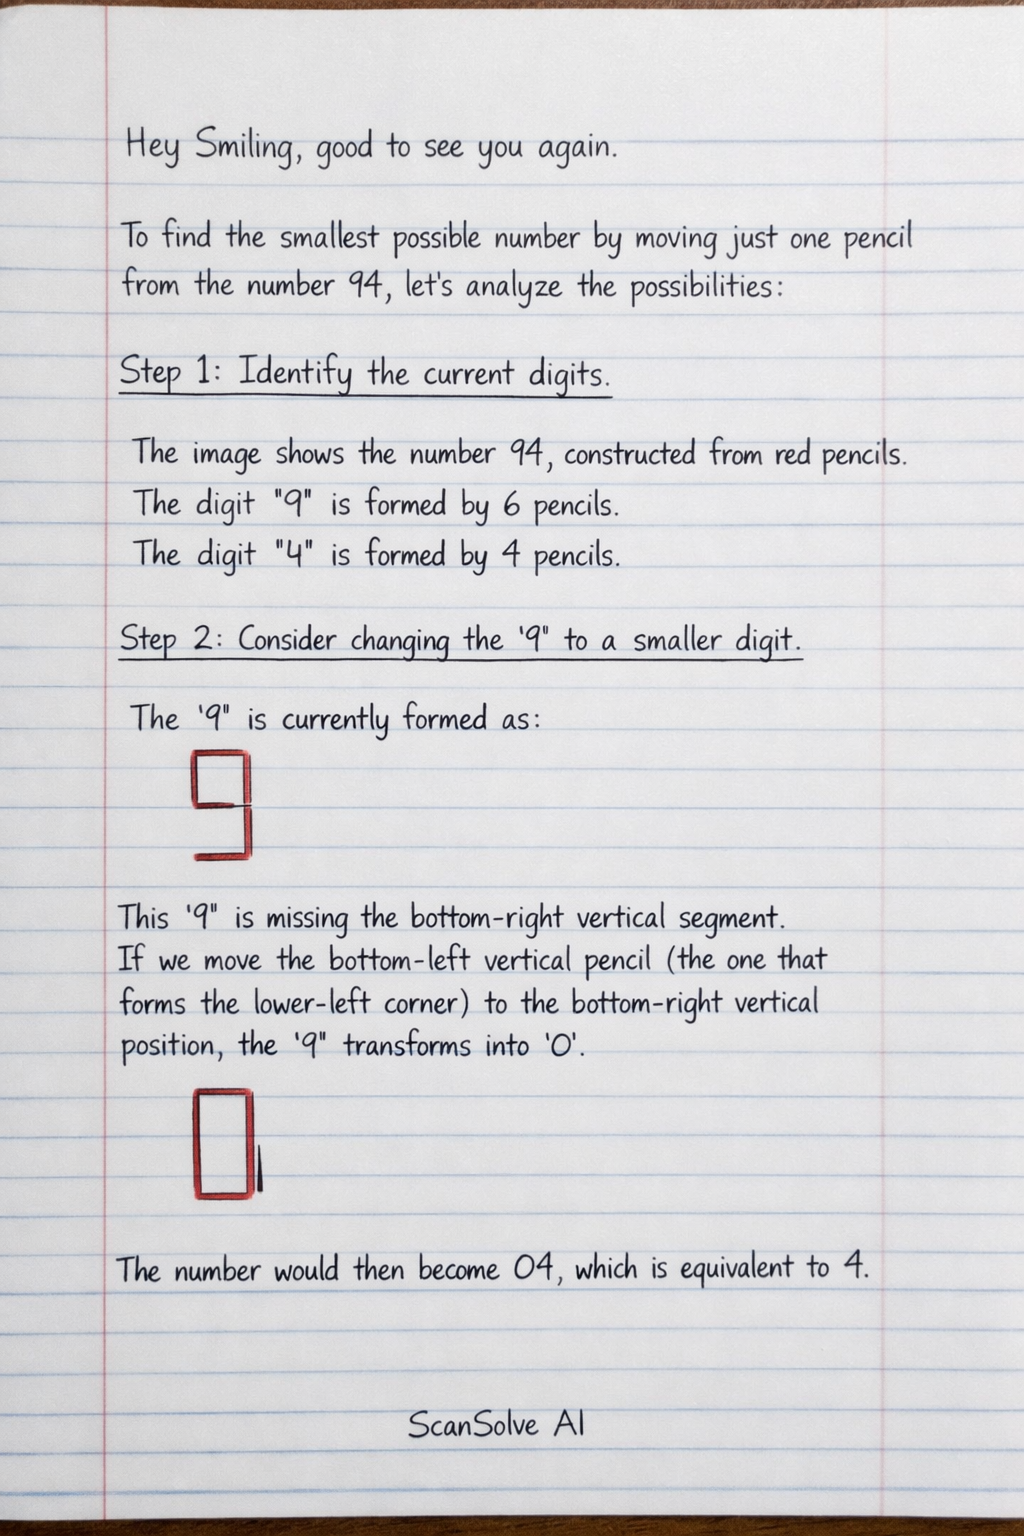 Hey Smiling, good to see you again.
To find the smallest possible number by moving just one pencil
from the number 94, let's analyze the possibilities:
Step 1: Identify the current digits.
The image shows the number 94, constructed from red pencils.
The digit "9" is formed by 6 pencils.
The digit "4" is formed by 4 pencils.
Step 2: Consider changing the '9" to a smaller digit.
The '9" is currently formed as:
9
This '9" is missing the bottom-right vertical segment.
If we move the bottom-left vertical pencil (the one that
forms the lower-left corner) to the bottom-right vertical
position, the '9" transforms into 'O'.
0
The number would then become 04, which is equivalent to 4.
ScanSolve AI